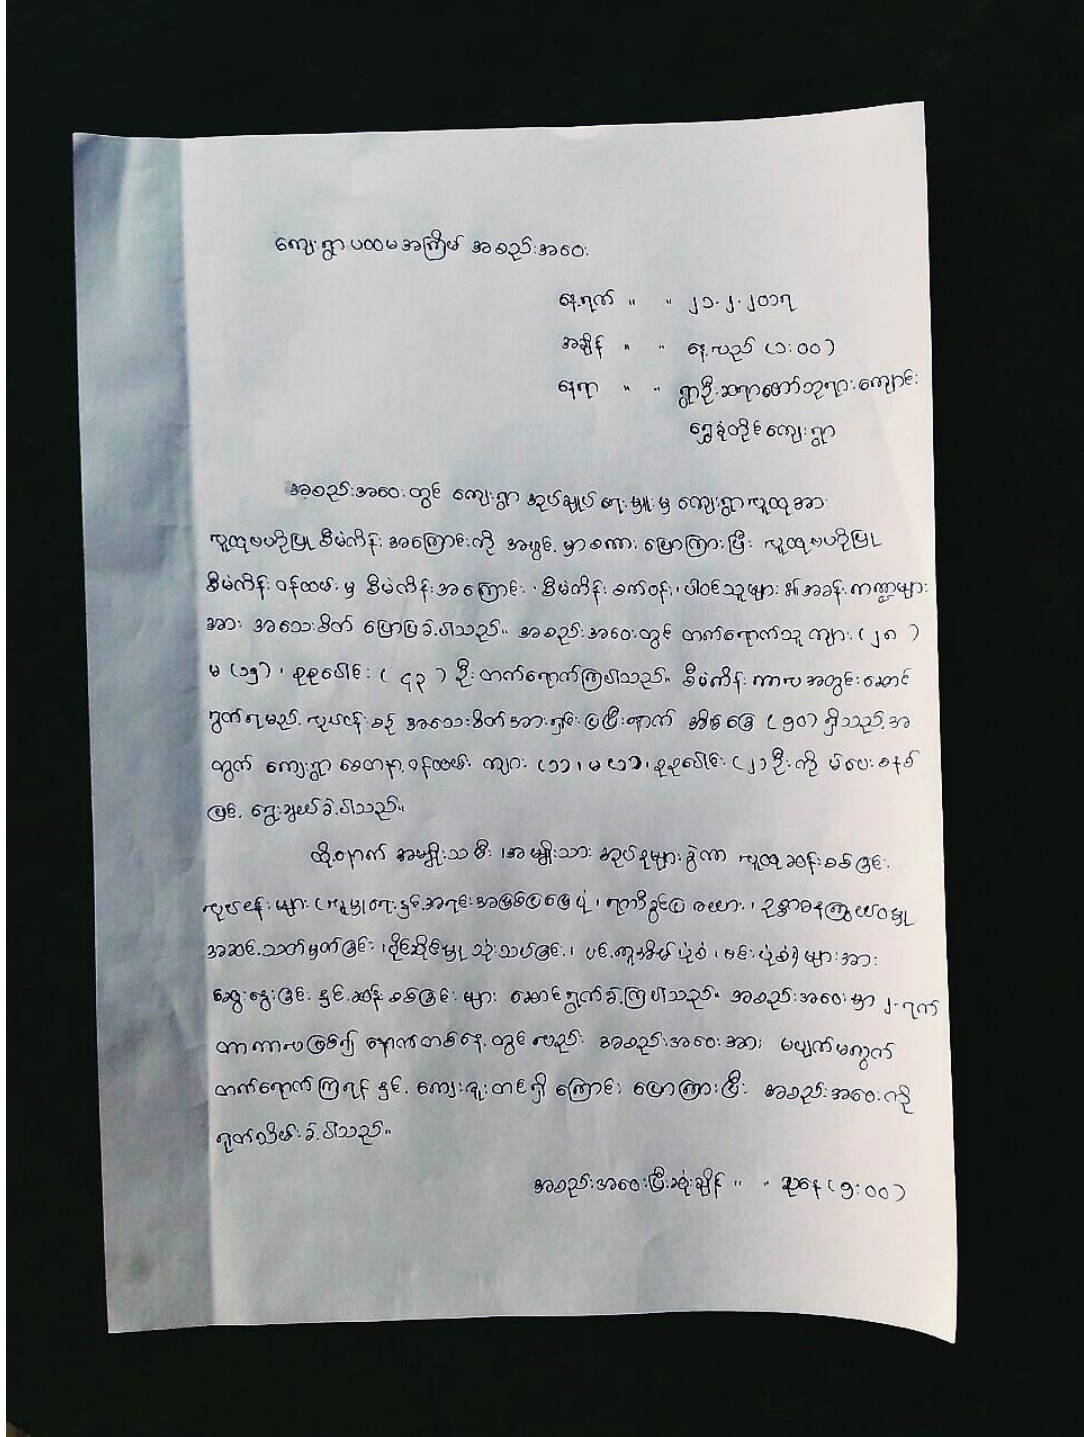 ကျေးရွာပထမအကြိမ် အစည်းအဝေး
နေ့ရက် " " ၂၁.၂.၂၀၁၇
အချိန် " " နေ့လည် (၁:၀၀)
နေရာ " " ရွာဦးဆရာတော်ဘုရားကျောင်း
ရွှေခုံတိုင်ကျေးရွာ
အစည်းအဝေးတွင် ကျေးရွာ အုပ်ချုပ်ရေးမှူးမှ ကျေးရွာလူထုအား
လူထုဗဟိုပြု စီမံကိန်း အကြောင်းကို အဖွင့် မှာစကား ပြောကြားပြီး လူထုဗဟိုပြု
စီမံကိန်း ဝန်ထမ်းမှ စီမံကိန်းအကြောင်း ၊ စီမံကိန်း စက်ဝန်း၊ ပါဝင်သူများ ၏ အခန်းကဏ္ဍများ
အား အသေးစိတ် ပြောပြခဲ့ပါသည်။ အစည်းအဝေးတွင် တက်ရောက်သူ ကျား (၂၈)
မ (၁၅) ၊ စုစုပေါင်း (၄၃) ဦး တက်ရောက်ကြပါသည်။ စီမံကိန်း ကာလအတွင်း ဆောင်
ရွက်ရမည့် လုပ်ငန်းစဉ် အသေးစိတ်အား ရှင်းပြပြီးနောက် အိမ်ခြေ (၅၀) ရှိသည့် အ
တွက် ကျေးရွာ စေတနာ့ ဝန်ထမ်း ကျား (၁) ၊ မ (၁) ၊ စုစုပေါင်း (၂) ဦးကို မဲပေးစနစ်
ဖြင့် ရွေးချယ်ခဲ့ပါသည်။
ထို့နောက် အမျိုးသမီး ၊ အမျိုးသား အုပ်စုများ ခွဲကာ လူထုဆန်းစစ်ခြင်း
လုပ်ငန်းများ (လူမှုရေးနှင့် အရင်းအမြစ်ပြမြေပုံ ၊ ရာသီခွင်ပြ ဇယား ၊ ဥစ္စာဓနကြွယ်ဝမှု
အဆင့်သတ်မှတ်ခြင်း ၊ ပိုင်ဆိုင်မှု သုံးသပ်ခြင်း ၊ ပင့်ကူအိမ်ပုံစံ ၊ ဗင်းပုံစံ) များအား
ဆွေးနွေးခြင်း နှင့် ဆန်းစစ်ခြင်း များ ဆောင်ရွက်ခဲ့ကြပါသည်။ အစည်းအဝေးမှာ ၂ ရက်
တာကာလဖြစ်၍ နောက်တစ်နေ့ တွင်လည်း အစည်းအဝေးအား မပျက်မကွက်
တက်ရောက်ကြရန် နှင့် ကျေးဇူးတင်ရှိ ကြောင်း ပြောကြားပြီး အစည်းအဝေးကို
ရုတ်သိမ်းခဲ့ပါသည်။
အစည်းအဝေးပြီးဆုံးချိန် " " ညနေ (၅:၀၀)